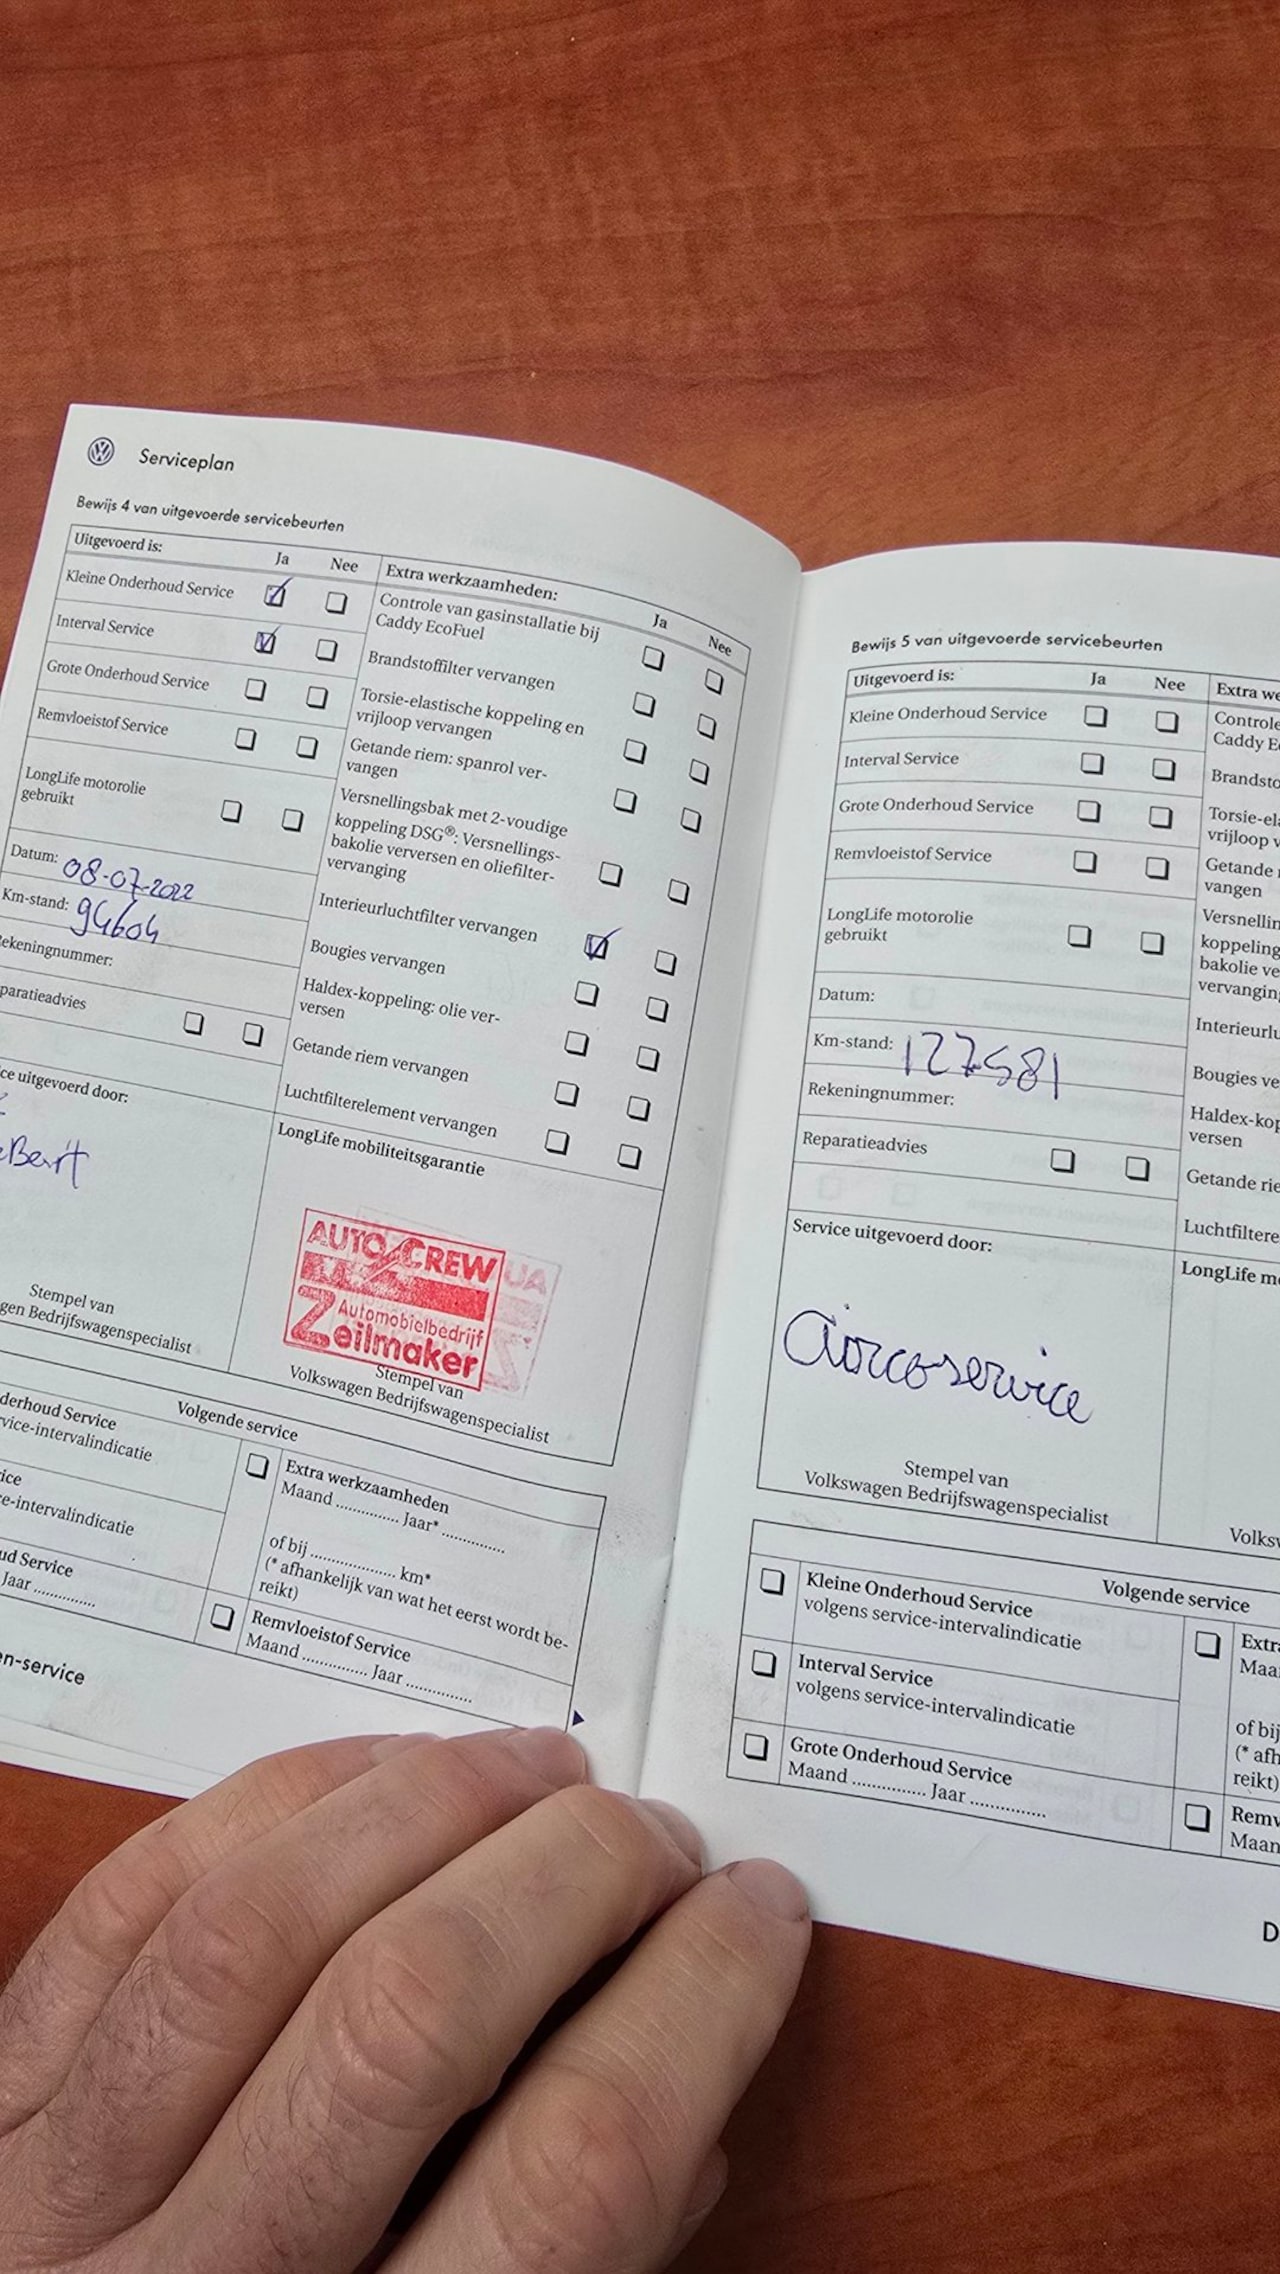 Serviceplan
Bewijs 4 van uitgevoerde servicebeurten
Uitgevoerd is:
Ja
Nee
Kleine Onderhoud Service
Interval Service
Grote Onderhoud Service
Remvloeistof Service
LongLife motorolie
gebruikt
Datum: 08-07-2022
Km-stand: 94604
ekeningnummer:
paratieadvies
ce uitgevoerd door:
Bart
Stempel van
gen Bedrijfswagenspecialist
Extra werkzaamheden:
Ja
Nee
Controle van gasinstallatie bij
Caddy EcoFuel
Brandstoffilter vervangen
Torsie-elastische koppeling en
vrijloop vervangen
Getande riem: spanrol ver-
vangen
Versnellingsbak met 2-voudige
koppeling DSG®: Versnellings-
bakolie verversen en oliefilter-
vervanging
Interieurluchtfilter vervangen
Bougies vervangen
Haldex-koppeling: olie ver-
versen
Getande riem vervangen
Luchtfilterelement vervangen
LongLife mobiliteitsgarantie
AUTO CREW
Automobielbedrijf
Zeilmaker
Stempel van
Volkswagen Bedrijfswagenspecialist
Volgende service
derhoud Service
rvice-intervalindicatie
ice
e-intervalindicatie
ud Service
Jaar ...............
Extra werkzaamheden
Maand ............... Jaar* ...............
of bij .................... km*
(* afhankelijk van wat het eerst wordt be-
reikt)
Remvloeistof Service
Maand ............... Jaar ...............
en-service
Bewijs 5 van uitgevoerde servicebeurten
Uitgevoerd is:
Ja
Nee
Kleine Onderhoud Service
Interval Service
Grote Onderhoud Service
Remvloeistof Service
LongLife motorolie
gebruikt
Datum:
Km-stand: 127581
Rekeningnummer:
Reparatieadvies
Service uitgevoerd door:
aircoservice
Stempel van
Volkswagen Bedrijfswagenspecialist
Extra we
Controle
Caddy E
Brandsto
Torsie-ela
vrijloop v
Getande
vangen
Versnellin
koppeling
bakolie ve
vervanging
Interieurlu
Bougies ve
Haldex-kop
versen
Getande rie
Luchtfiltere
LongLife m
Volksw
Volgende service
Kleine Onderhoud Service
volgens service-intervalindicatie
Interval Service
volgens service-intervalindicatie
Grote Onderhoud Service
Maand ............... Jaar ...............
Extra
Maa
of bij
(* afh
reikt)
Remv
Maan
D